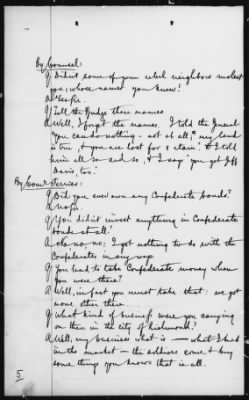 By Counsel:
Q Didn't some of your rebel neighbors molest
you, whose names you knew?
A Yes sir.
Q Tell the Judge their names
A Well, I forgot the names. I told the General
"you can do nothing - not at all," my land
is true, & you are loot for a stain"; & I told
him all so and so, & I say "you get Jeff
Davis, too."
By Com'r Ferriss:
Q Did you ever own any Confederate bonds?
A No sir
Q You didn't invest anything in Confederate
bonds at all?
A No, no, no; I got nothing to do with the
Confederates in any way
Q You had to take Confederate money when
you were there?
A Well, in fact you must take that: we got
none other there
Q What kind of business were you carrying
on there in the city of Richmond?
A Well, my business what is — what I had
in the market — the soldiers come & buy
some things you knows that is all.
5